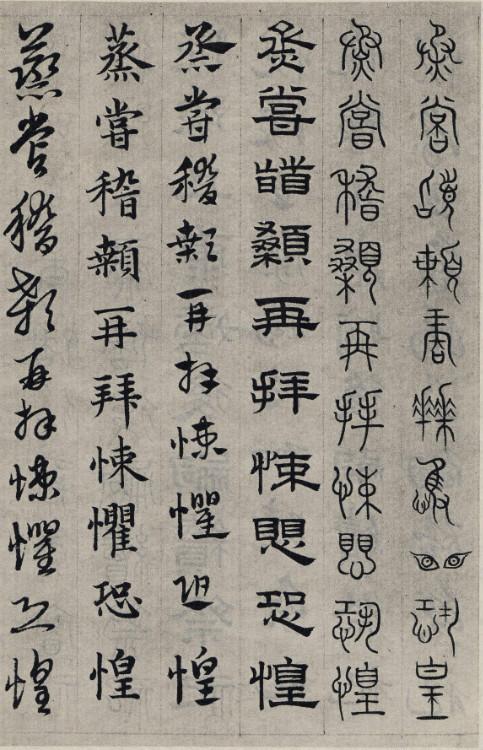 烝嘗稽顙再拜悚懼恐惶
烝嘗稽顙再拜悚懼恐惶
烝嘗稽顙再拜悚懼恐惶
烝嘗稽顙再拜悚懼恐惶
蒸嘗稽顙再拜悚懼恐惶
蒸嘗稽顙再拜悚懼恐惶